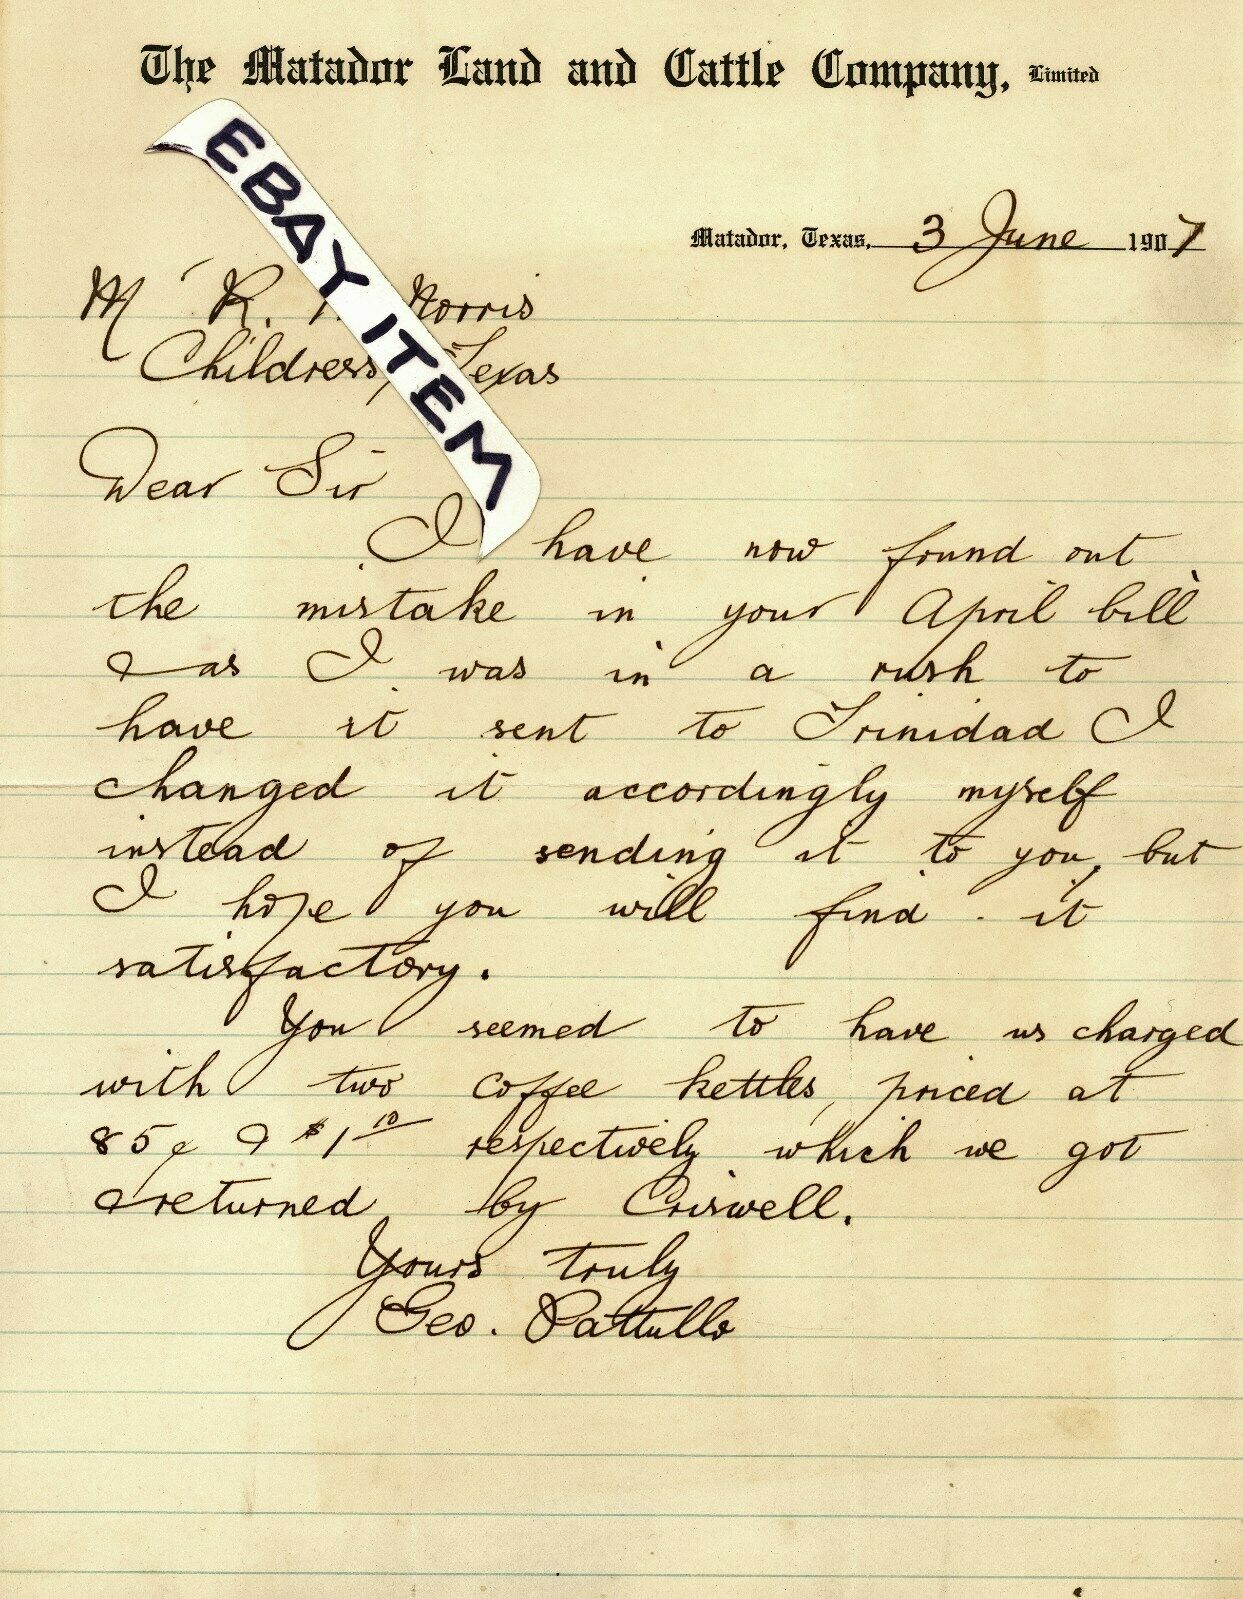 The Matador Land and Cattle Company, Limited
EBAY ITEM
Matador, Texas, 3 June 1907
Mr R. Norris
Childress, Texas
Dear Sir
I have now found out
the mistake in your April bill
& as I was in a rush to
have it sent to Trinidad I
changed it accordingly myself
instead of sending it to you, but
I hope you will find it
satisfactory.
You seemed to have us charged
with two coffee kettles, priced at
85¢ & $1 10 respectively which we got
& returned by Criswell.
Yours truly
Geo. Pattullo